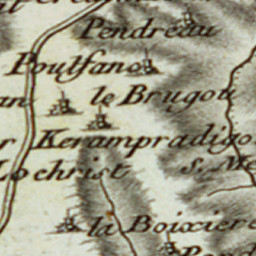 Pendreau
Poulfano
le Brugou
Kerampradigo
Lochrist
S. Me
la Boixiere